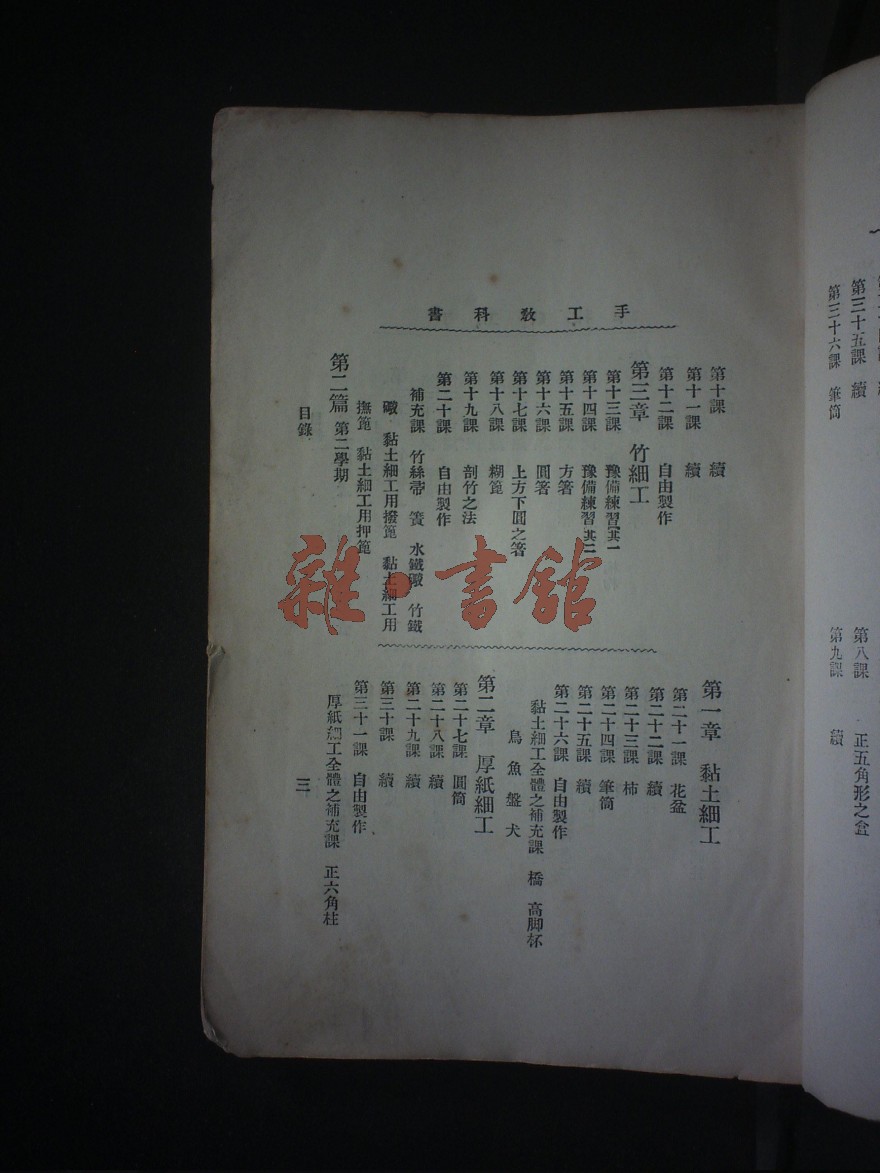 第三十五課 續
第三十六課 筆筒
第八課 正五角形之盒
第九課 續
手工教科書
第十課 續
第十一課 續
第十二課 自由製作
第三章 竹細工
第十三課 豫備練習其一
第十四課 豫備練習其二
第十五課 方箸
第十六課 圓箸
第十七課 上方下圓之箸
第十八課 糊篦
第十九課 剖竹之法
第二十課 自由製作
補充課 竹絲帚 簀 水鐵礮 竹鐵
礮 黏土細工用撥篦 黏土細工用
撫篦 黏土細工用押篦
第二篇 第二學期
第一章 黏土細工
第二十一課 花盆
第二十二課 續
第二十三課 柿
第二十四課 筆筒
第二十五課 續
第二十六課 自由製作
黏土細工全體之補充課 橋 高脚杯
鳥 魚 盤 犬
第二章 厚紙細工
第二十七課 圓筒
第二十八課 續
第二十九課 續
第三十課 續
第三十一課 自由製作
厚紙細工全體之補充課 正六角柱
目錄
三
雜·書館